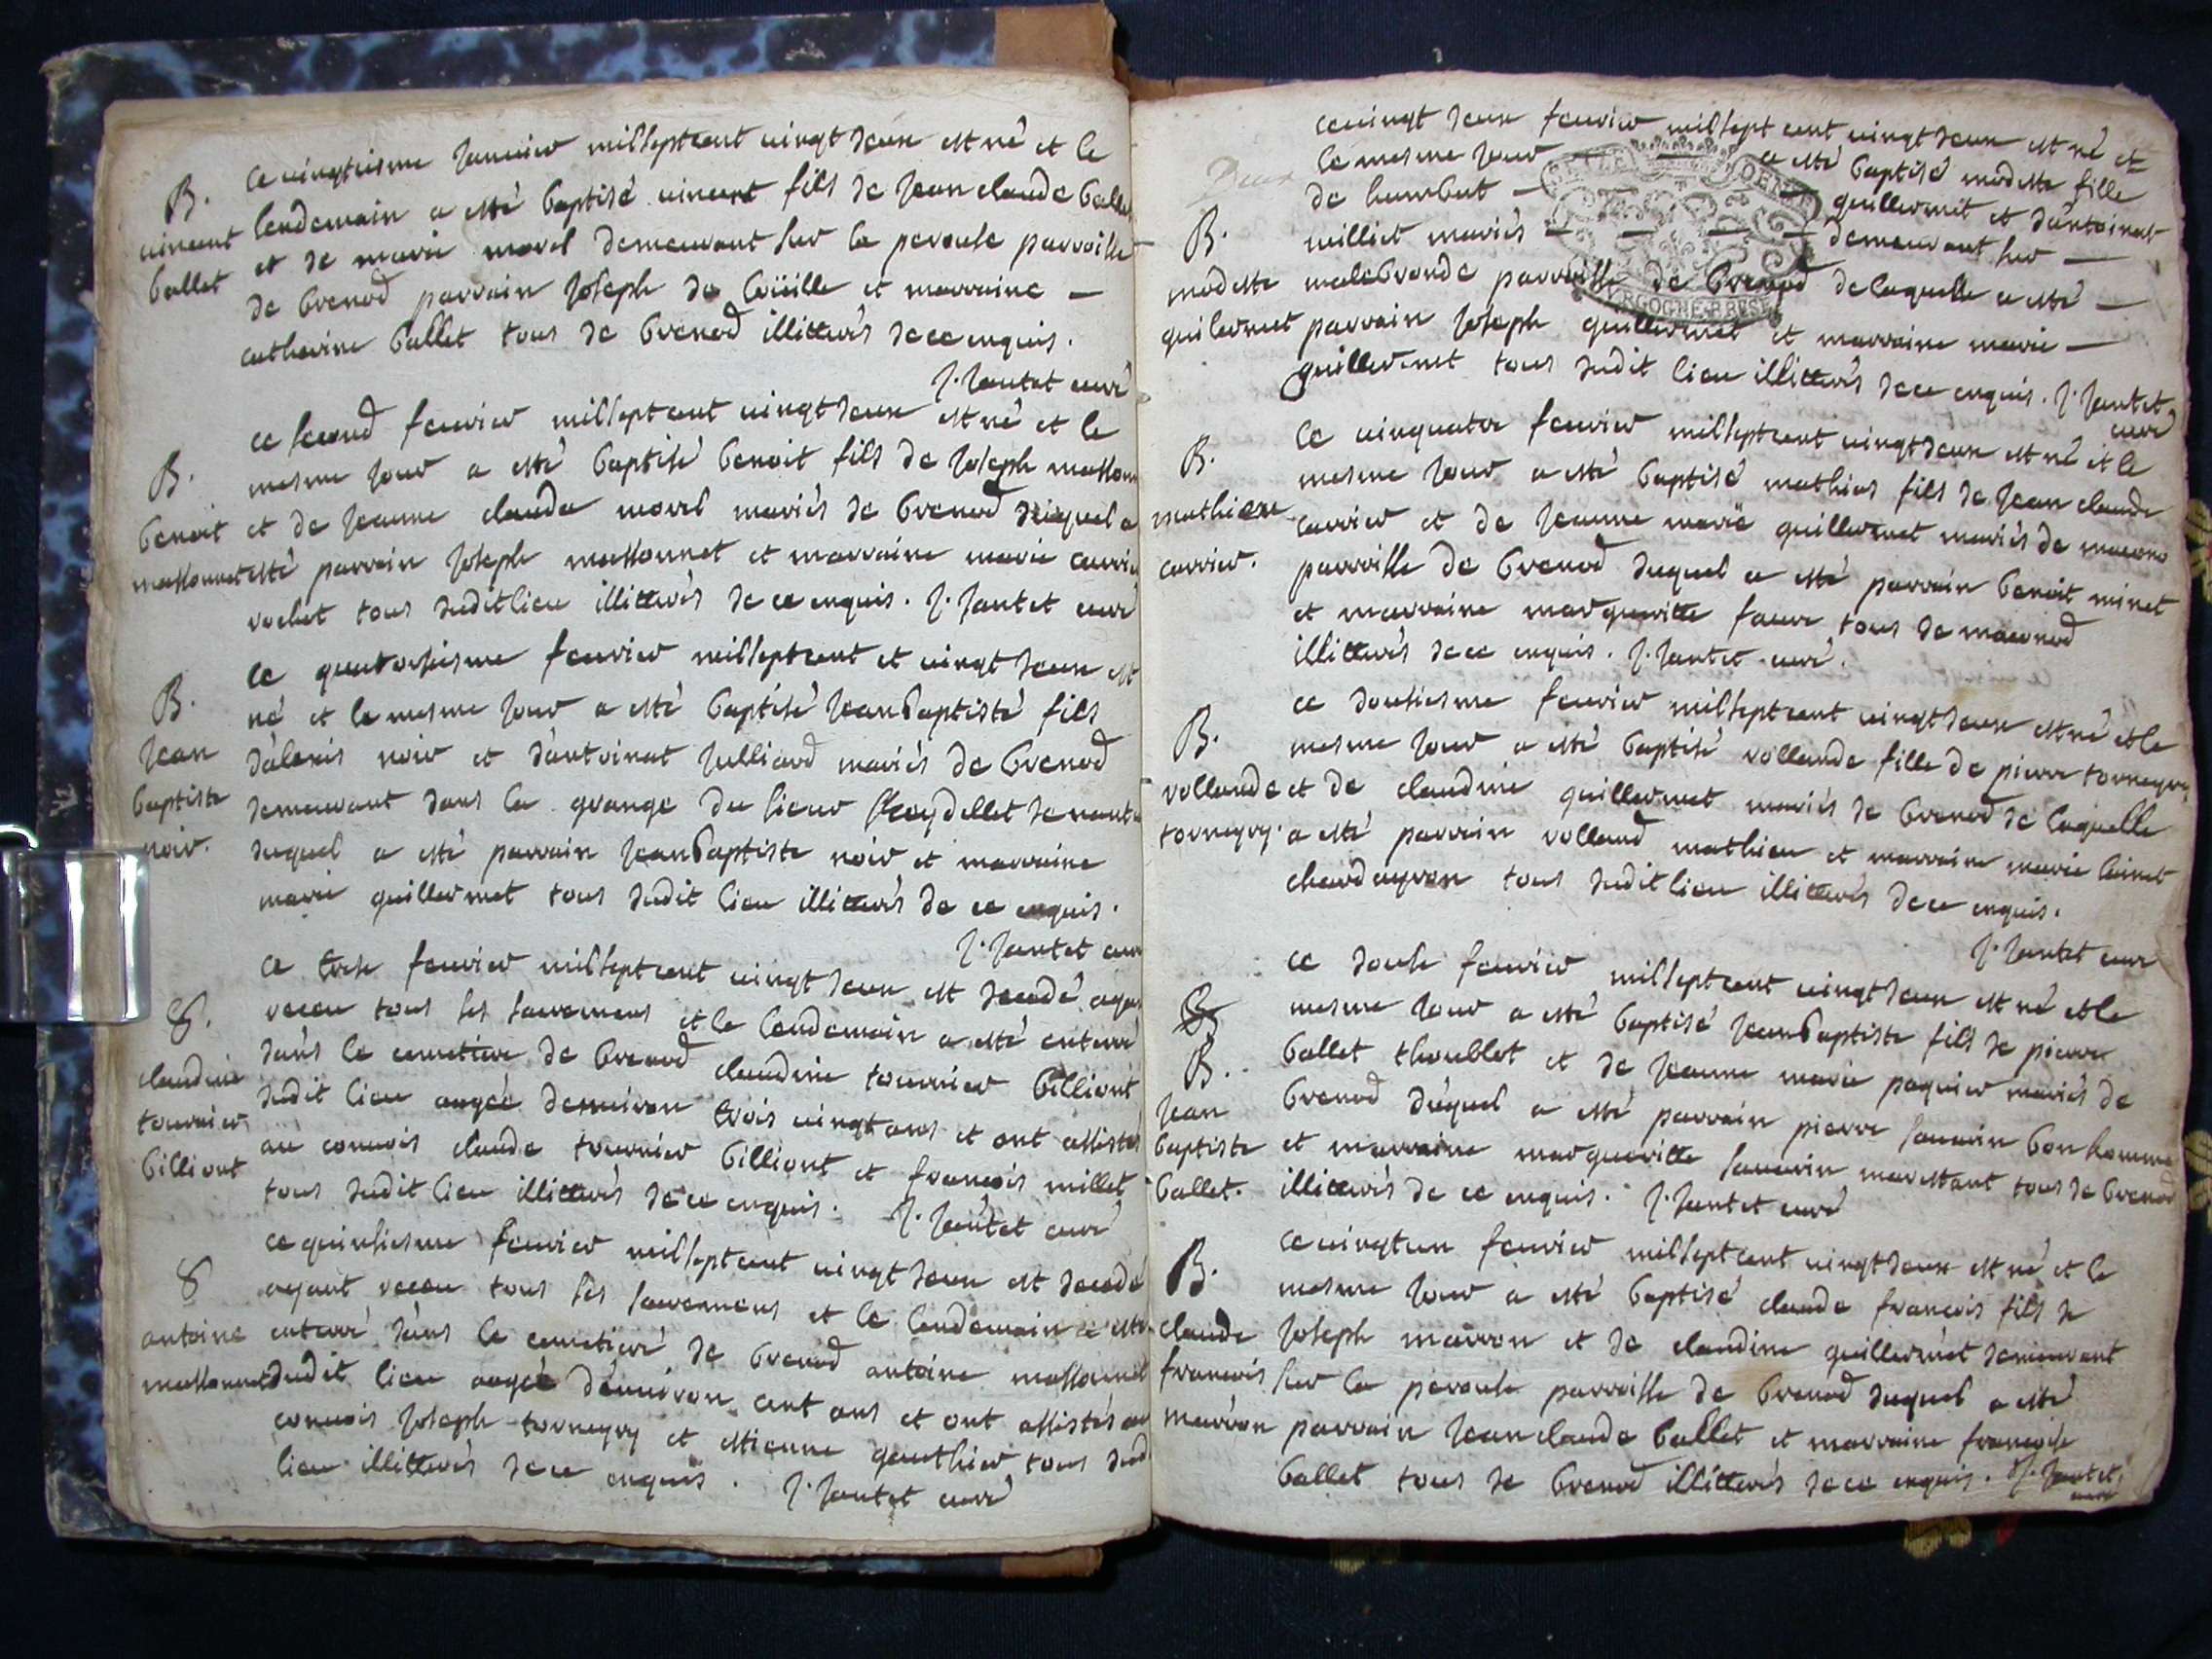 B.
vincent
ballet
ce vingtiesme Januier milseptcent vingt deux est né et le
lendemain a esté baptisé vincent fils de Jean claude ballet
et de marie morel demeurant sur la perouse parroisse
de brenod parrain Joseph de et marraine —
catherine ballet tous de brenod illitterés de ce enquis.
J. Jantet curé
B.
benoit
massonnet
ce second feurier milseptcent vingt deux est né et le
mesme Jour a esté baptisé benoit fils de Joseph
et de Jeanne claude morel mariés de brenod duquel a
esté parrain Joseph massonnet et marraine marie carrier
rochet tous dudit lieu illitterés de ce enquis. J. Jantet curé
B.
Jean
baptiste
noir.
ce quatorsiesme feurier milseptcent et vingt deux est
né et le mesme Jour a esté baptisé Jean baptiste fils
d'alexis noir et d'antoinat Julliard mariés de brenod
demeurant dans la grange du sieur de
duquel a esté parrain Jean baptiste noir et marraine
marie guillermet tous dudit lieu illitterés de ce enquis.
J. Jantet curé
S.
claudine
tournier
billiont
ce trese feurier milseptcent vingt deux est decedé ayant
receu tous ses sacremens et le lendemain a esté enterré
dans le cemetiere de brenod claudine tournier billiont
dudit lieu aagée denuiron trois vingt ans et ont assistés
au conuois claude tournier billiont et francois millet
tous dudit lieu illitterés de ce enquis. J. Jantet curé
S
antoine
massonnet
ce quinsiesme feurier milseptcent vingt deux est decedé
ayant receu tous ses sacremens et le lendemain a esté
enterré dans le cemetiere de brenod antoine massonnet
dudit lieu aagé d'enuiron cent ans et ont assistés au
conuois Joseph tornegry et estienne gauthier tous dud
lieu illitterés de ce enquis. J. Jantet curé
B.
modeste
guilermet
ce vingt deux feurier milsept cent vingt deux est né et
le mesme Jour — a esté baptisé modeste fille
de humbert — guillermet et d'antoinat
milliet mariés — — — — demeurant sur —
malebronde parroisse de brenod de laquelle a esté —
parrain Joseph guillermet et marraine marie —
guillermet tous dudit lieu illitterés de ce enquis. J. Jantet
curé
B.
mathieu
carrier.
le vinquatre feurier milseptcent vingt deux est né et le
mesme Jour a esté baptisé mathieu fils de Jean claude
carrier et de Jeanne marie guillermet mariés de
parroisse de brenod duquel a esté parrain benoit minet
et marraine margueritte faure tous de maconod
illitterés de ce enquis. J. Jantet curé.
B.
vollande
tornegry.
ce dousiesme feurier milseptcent vingt deux est né et le
mesme Jour a esté baptisé vollande fille de pierre tornegry
et de claudine guillermet mariés de brenod de laquelle
a esté parrain volland mathieu et marraine marie
tous dudit lieu illitterés de ce enquis.
J. Jantet curé
B.
Jean
baptiste
ballet.
ce douse feurier milseptcent vingt deux est né et le
mesme Jour a esté baptisé Jean baptiste fils de pierre
ballet thoublot et de Jeanne marie paquier mariés de
brenod duquel a esté parrain pierre sauarin bonhomme
et marraine marguerite sauarin marestant tous de brenod
illitterés de ce enquis. J. Jantet curé
B.
claude
francois
marron
ce vingtun feurier milseptcent vingt deux est né et le
mesme Jour a esté baptisé claude francois fils de
Joseph marron et de claudine guillermet demeurant
sur la perouse parroisse de brenod duquel a esté
parrain Jean claude ballet et marraine francoise
ballet tous de brenod illitterés de ce enquis. J. Jantet
curé